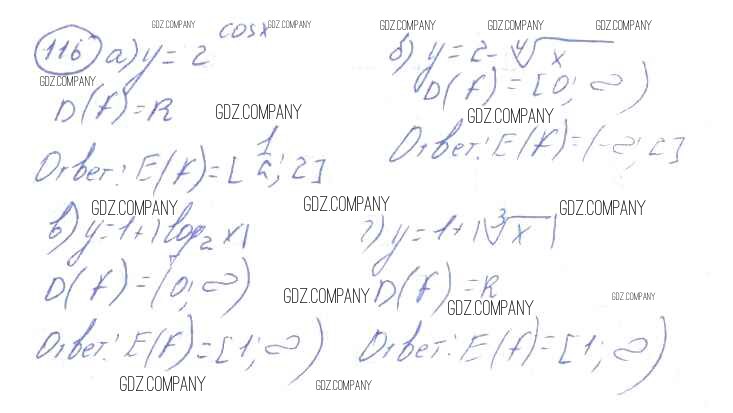 GDZ.COMPANY GDZ.COMPANY GDZ.COMPANY GDZ.COMPANY GDZ.COMPANY
116 а) y = 2^cosx
б) y = 2 - ⁴√x
GDZ.COMPANY
D(f) = R
D(f) = [0; ∞)
GDZ.COMPANY GDZ.COMPANY
Ответ: E(f) = [1/2; 2]
Ответ: E(f) = (-∞; 2]
GDZ.COMPANY GDZ.COMPANY GDZ.COMPANY
в) y = 1 + |log₂x|
г) y = 1 + |³√x|
D(f) = (0; ∞)
D(f) = R
GDZ.COMPANY GDZ.COMPANY GDZ.COMPANY
Ответ: E(f) = [1; ∞)
Ответ: E(f) = [1; ∞)
GDZ.COMPANY GDZ.COMPANY